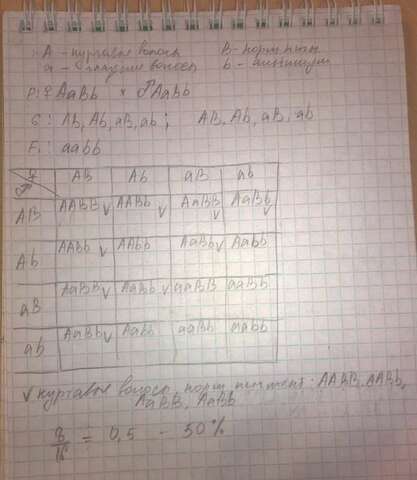 A - куртавые волосы B - норм пигм
a - гладкие волосы b - альбинизм
P: ♀ AaBb × ♂ AaBb
G: Ab, Ab, aB, ab ; AB, Ab, aB, ab
F₁: aabb
♀ ♂ AB Ab aB ab
AB AABB ✓ AABb ✓ AaBB ✓ AaBb ✓
Ab AABb ✓ AAbb AaBb ✓ Aabb
aB AaBB ✓ AaBb ✓ aaBB aaBb
ab AaBb ✓ Aabb aaBb aabb
✓ куртавые волосы, норм пигмент: AABB, AABb,
AaBB, AaBb
8/16 = 0,5 - 50%